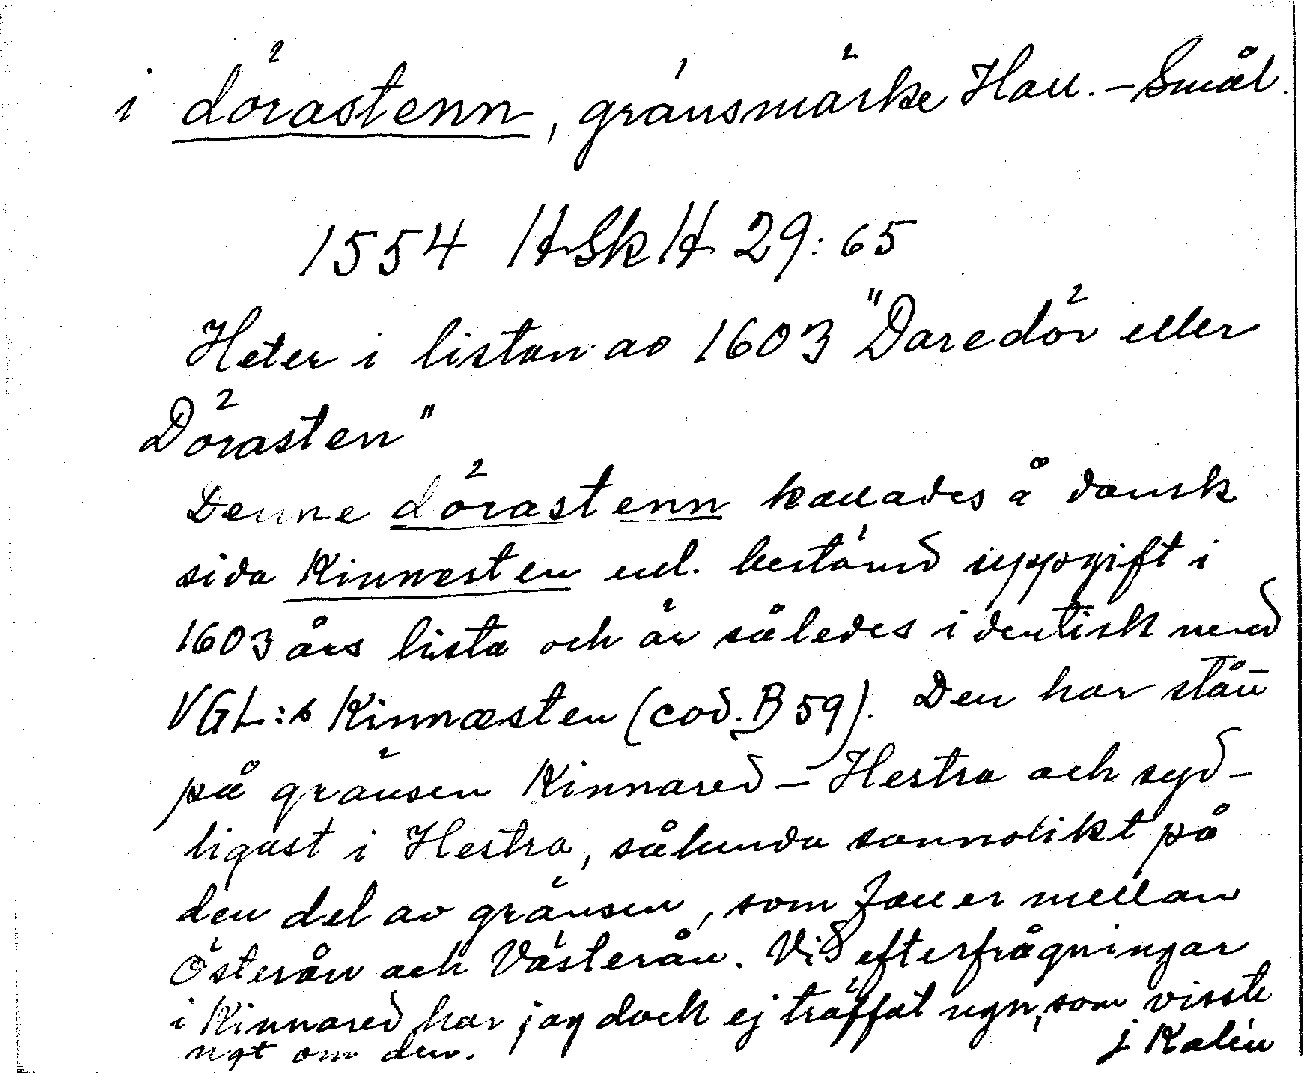 i dörastenn, gränsmärke Hall. - Smål.
1554 HSkH 29:65
Heter i listan av 1603 "Daredör eller
Dörasten"
Denne dörastenn kallades å dansk
sida Kinnesten enl. bestämd uppgift i
1603 års lista och är således identisk med
VGL:s Kinnæsten (cod. B 59). Den har stått
på gränsen Kinnared - Hestra och syd-
ligast i Hestra, sålunda sannolikt på
den del av gränsen, som faller mellan
Österån och Västerån. Vid efterfrågningar
i Kinnared har jag dock ej träffat ngn, som visste
ngt om den. J Kalén